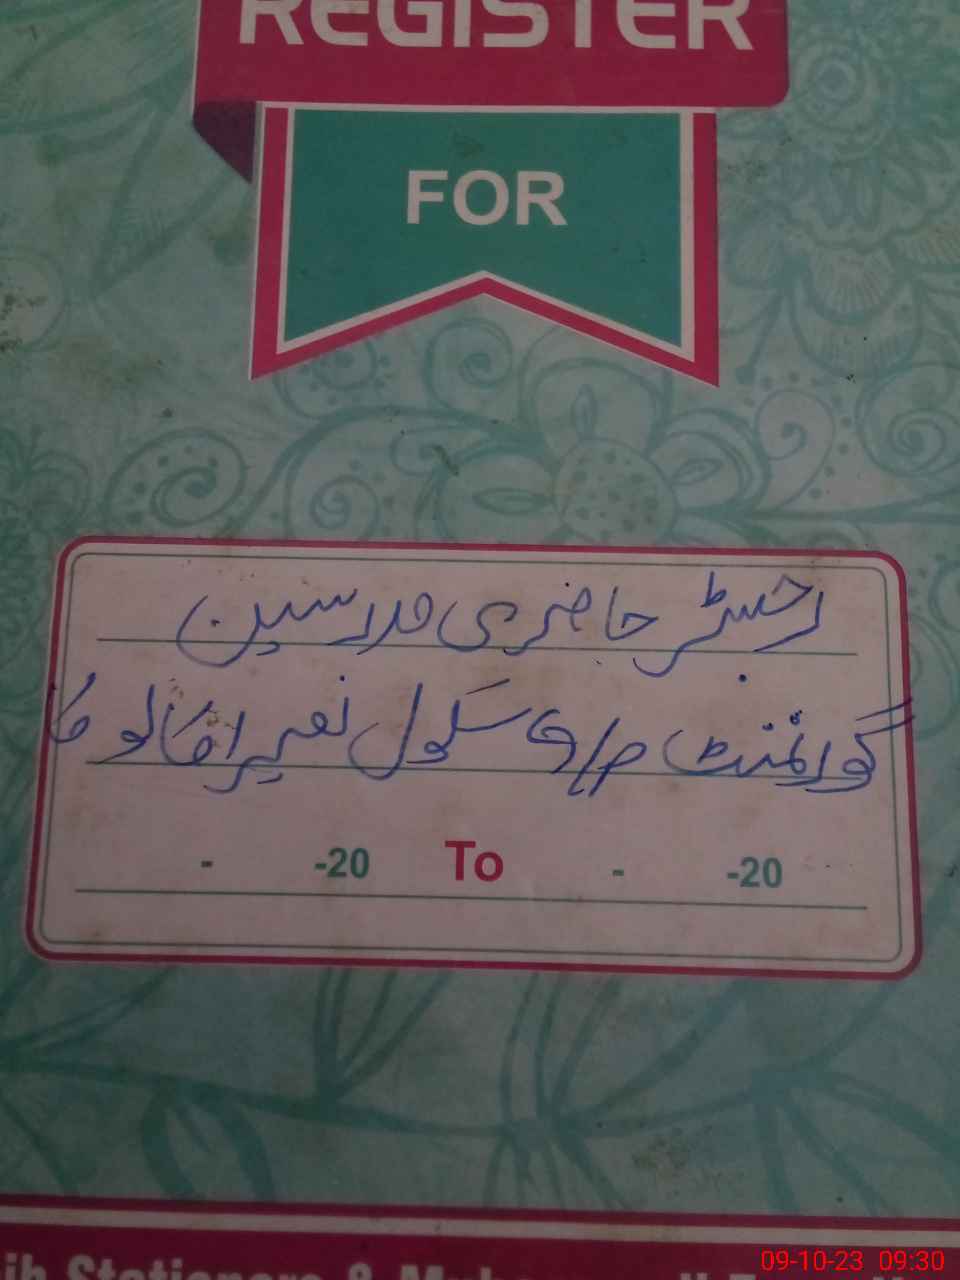 REGISTER
FOR
رجسٹر حاضری مدرسین
گورنمنٹ م/و سکول نصیر
- -20 To - -20
Stationers &
09-10-23 09:30